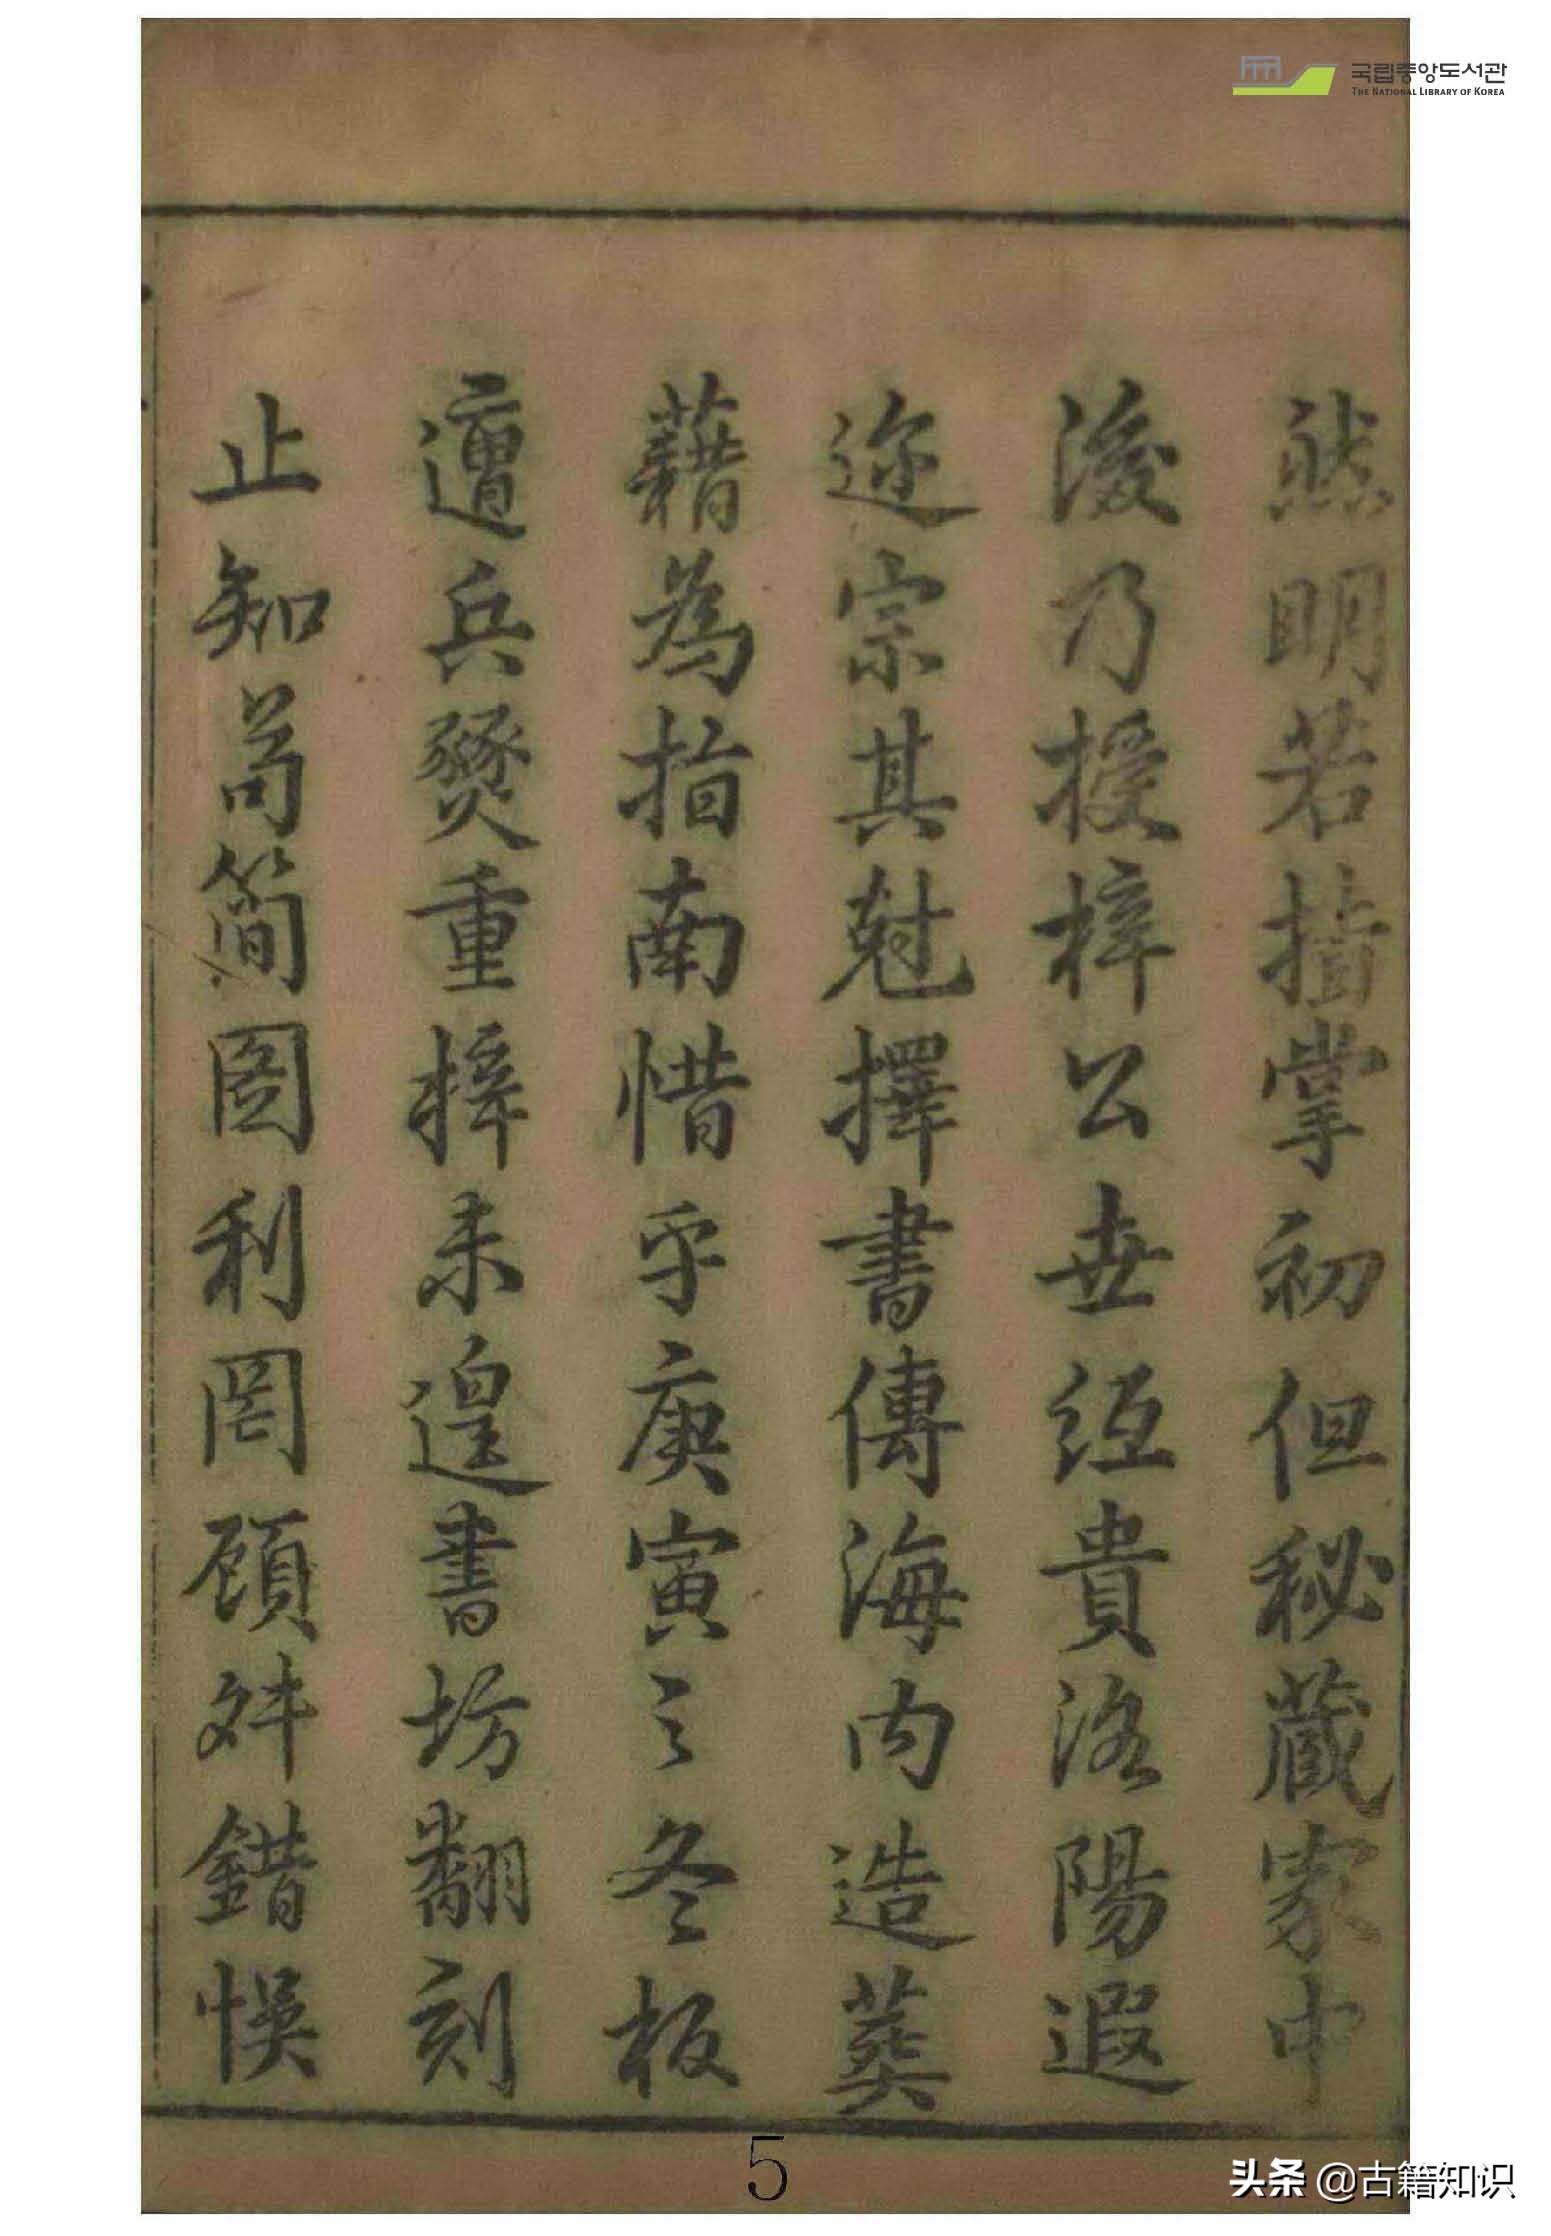 국립중앙도서관
THE NATIONAL LIBRARY OF KOREA
然明若指掌初但秘藏家中
後乃授梓公世紙貴洛陽遐
迩宗其尅擇書傳海内造葬
藉為指南惜乎庚寅之冬板
遭兵燹重梓未遑書坊翻刻
止知苟简圖利罔顧舛錯悞
5
头条 @古籍知识